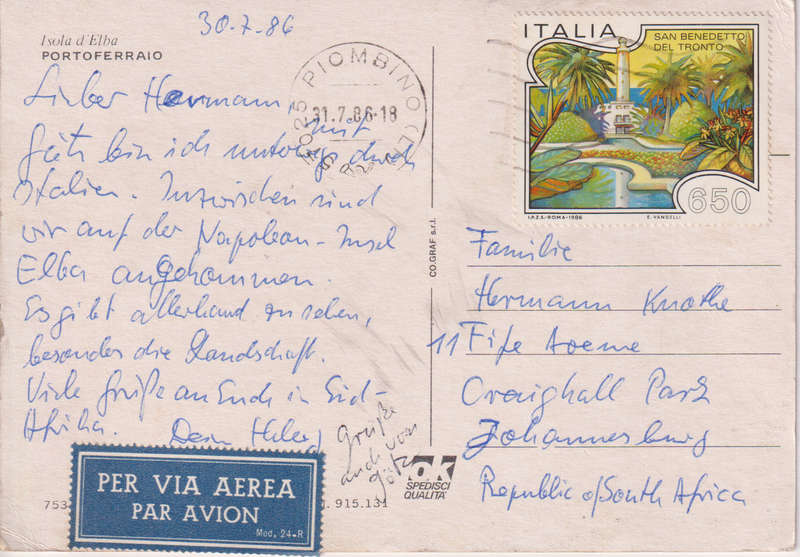 30.7.86
Isola d'Elba
PORTOFERRAIO
Lieber Hermann, mit
Götz bin ich unterwegs durch
Italien. Inzwischen sind
wir auf der Napoleon-Insel
Elba angekommen.
Es gibt allerhand zu sehen,
besonders die Landschaft.
Viele Grüße an Euch in Süd-
Afrika. Dein
Grüße
auch von
Götz
PER VIA AEREA
PAR AVION
Mod. 24-R
753
915.131
CO.GRAF s.r.l.
OK
SPEDISCI
QUALITA'
PIOMBINO (LI)
31.7.86-18
ITALIA
SAN BENEDETTO
DEL TRONTO
650
I.P.Z.S.-ROMA-1986
E. VANGELLI
Familie
Hermann Knothe
11 Fife Avenue
Craighall Park
Johannesburg
Republic of South Africa